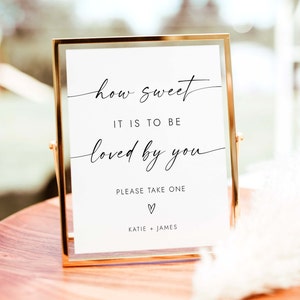 how sweet
IT IS TO BE
loved by you
PLEASE TAKE ONE
KATIE + JAMES